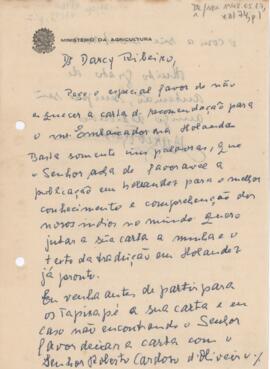 MINISTÉRIO DA AGRICULTURA
Dr Darcy Ribeiro,
Peço o especial favor de não
esquecer a carta d. recomendação para
o nosso Embaixador na Holanda
Basta somente umas palavras, que
o Senhor acha de favoravel a
publicação em holandez para o melhor
conhecimento e comprehenção dos
nossos indios no mundo Quero
juntar a sua carta a minha e o
texto da tradução em Holandez
já pronto.
Eu venho antes de partir para
os Tapirapé a sua carta e em
caso não encontrando o Senhor
favor deixar a carta com o
Senhor Roberto Cardoso d'Oliveira